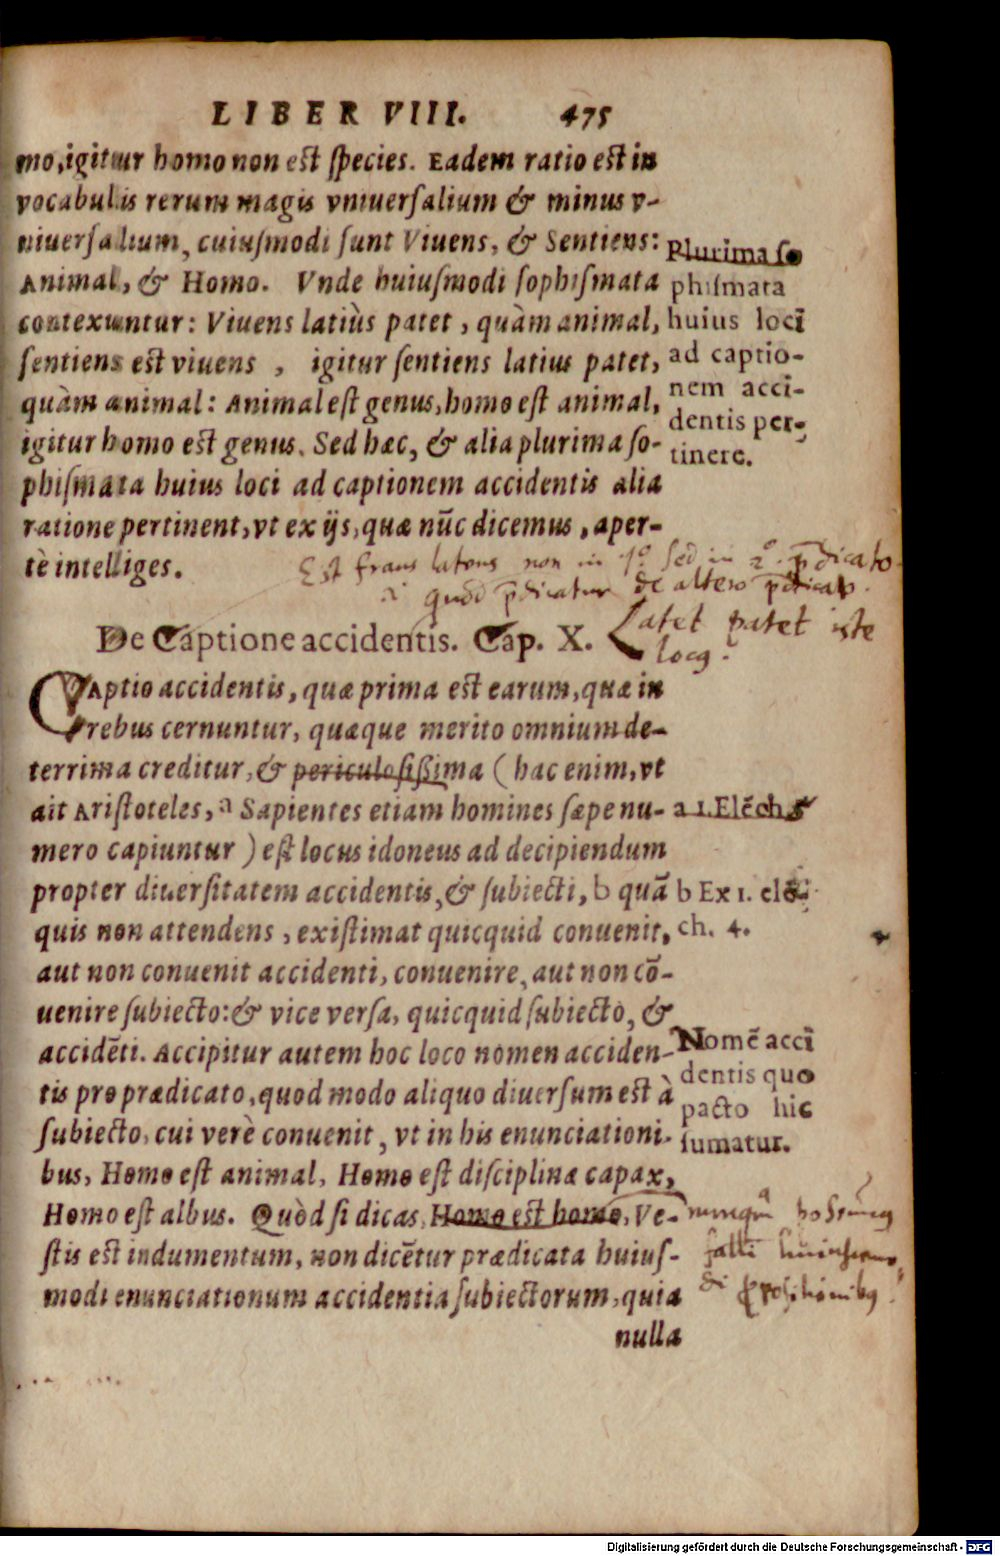 LIBER VIII. 475
mo, igitur homo non est species. Eadem ratio est in
vocabulis rerum magis vniuersalium & minus v-
niuersalium, cuiusmodi sunt Viuens, & Sentiens:
Animal, & Homo. Vnde huiusmodi sophismata
contexuntur: Viuens latiùs patet, quàm animal,
sentiens est viuens, igitur sentiens latius patet,
quàm animal: Animal est genus, homo est animal,
igitur homo est genus. Sed hæc, & alia plurima so-
phismata huius loci ad captionem accidentis alia
ratione pertinent, vt ex ijs, quæ nūc dicemus, aper-
tè intelliges.
Plurima so
phismata
huius loci
ad captio-
nem acci-
dentis per-
tinere.
Est fraus latens non in 1º sed in 2º. p̄dicato
quod p̄dicatur de altero
Latet patet iste
De Captione accidentis. Cap. X.
CAptio accidentis, quæ prima est earum, quæ in
rebus cernuntur, quæque merito omnium de-
terrima creditur, & periculosissima (hac enim, vt
ait Aristoteles, a Sapientes etiam homines sæpe nu-
mero capiuntur) est locus idoneus ad decipiendum
propter diuersitatem accidentis, & subiecti, b quā
quis non attendens, existimat quicquid conuenit,
aut non conuenit accidenti, conuenire, aut non cō-
uenire subiecto: & vice versa, quicquid subiecto, &
accidēti. Accipitur autem hoc loco nomen acciden-
tis pro prædicato, quod modo aliquo diuersum est à
subiecto, cui verè conuenit, vt in his enunciationi-
bus, Homo est animal, Homo est disciplinæ capax,
Homo est albus. Quòd si dicas, Homo est homo, Ve-
stis est indumentum, non dicētur prædicata huius-
modi enunciationum accidentia subiectorum, quia
nulla
a 1. Elēch.
b Ex 1. elē-
ch. 4.
Nomē acci
dentis quo
pacto hic
sumatur.
falli
Digitalisierung gefördert durch die Deutsche Forschungsgemeinschaft - DFG